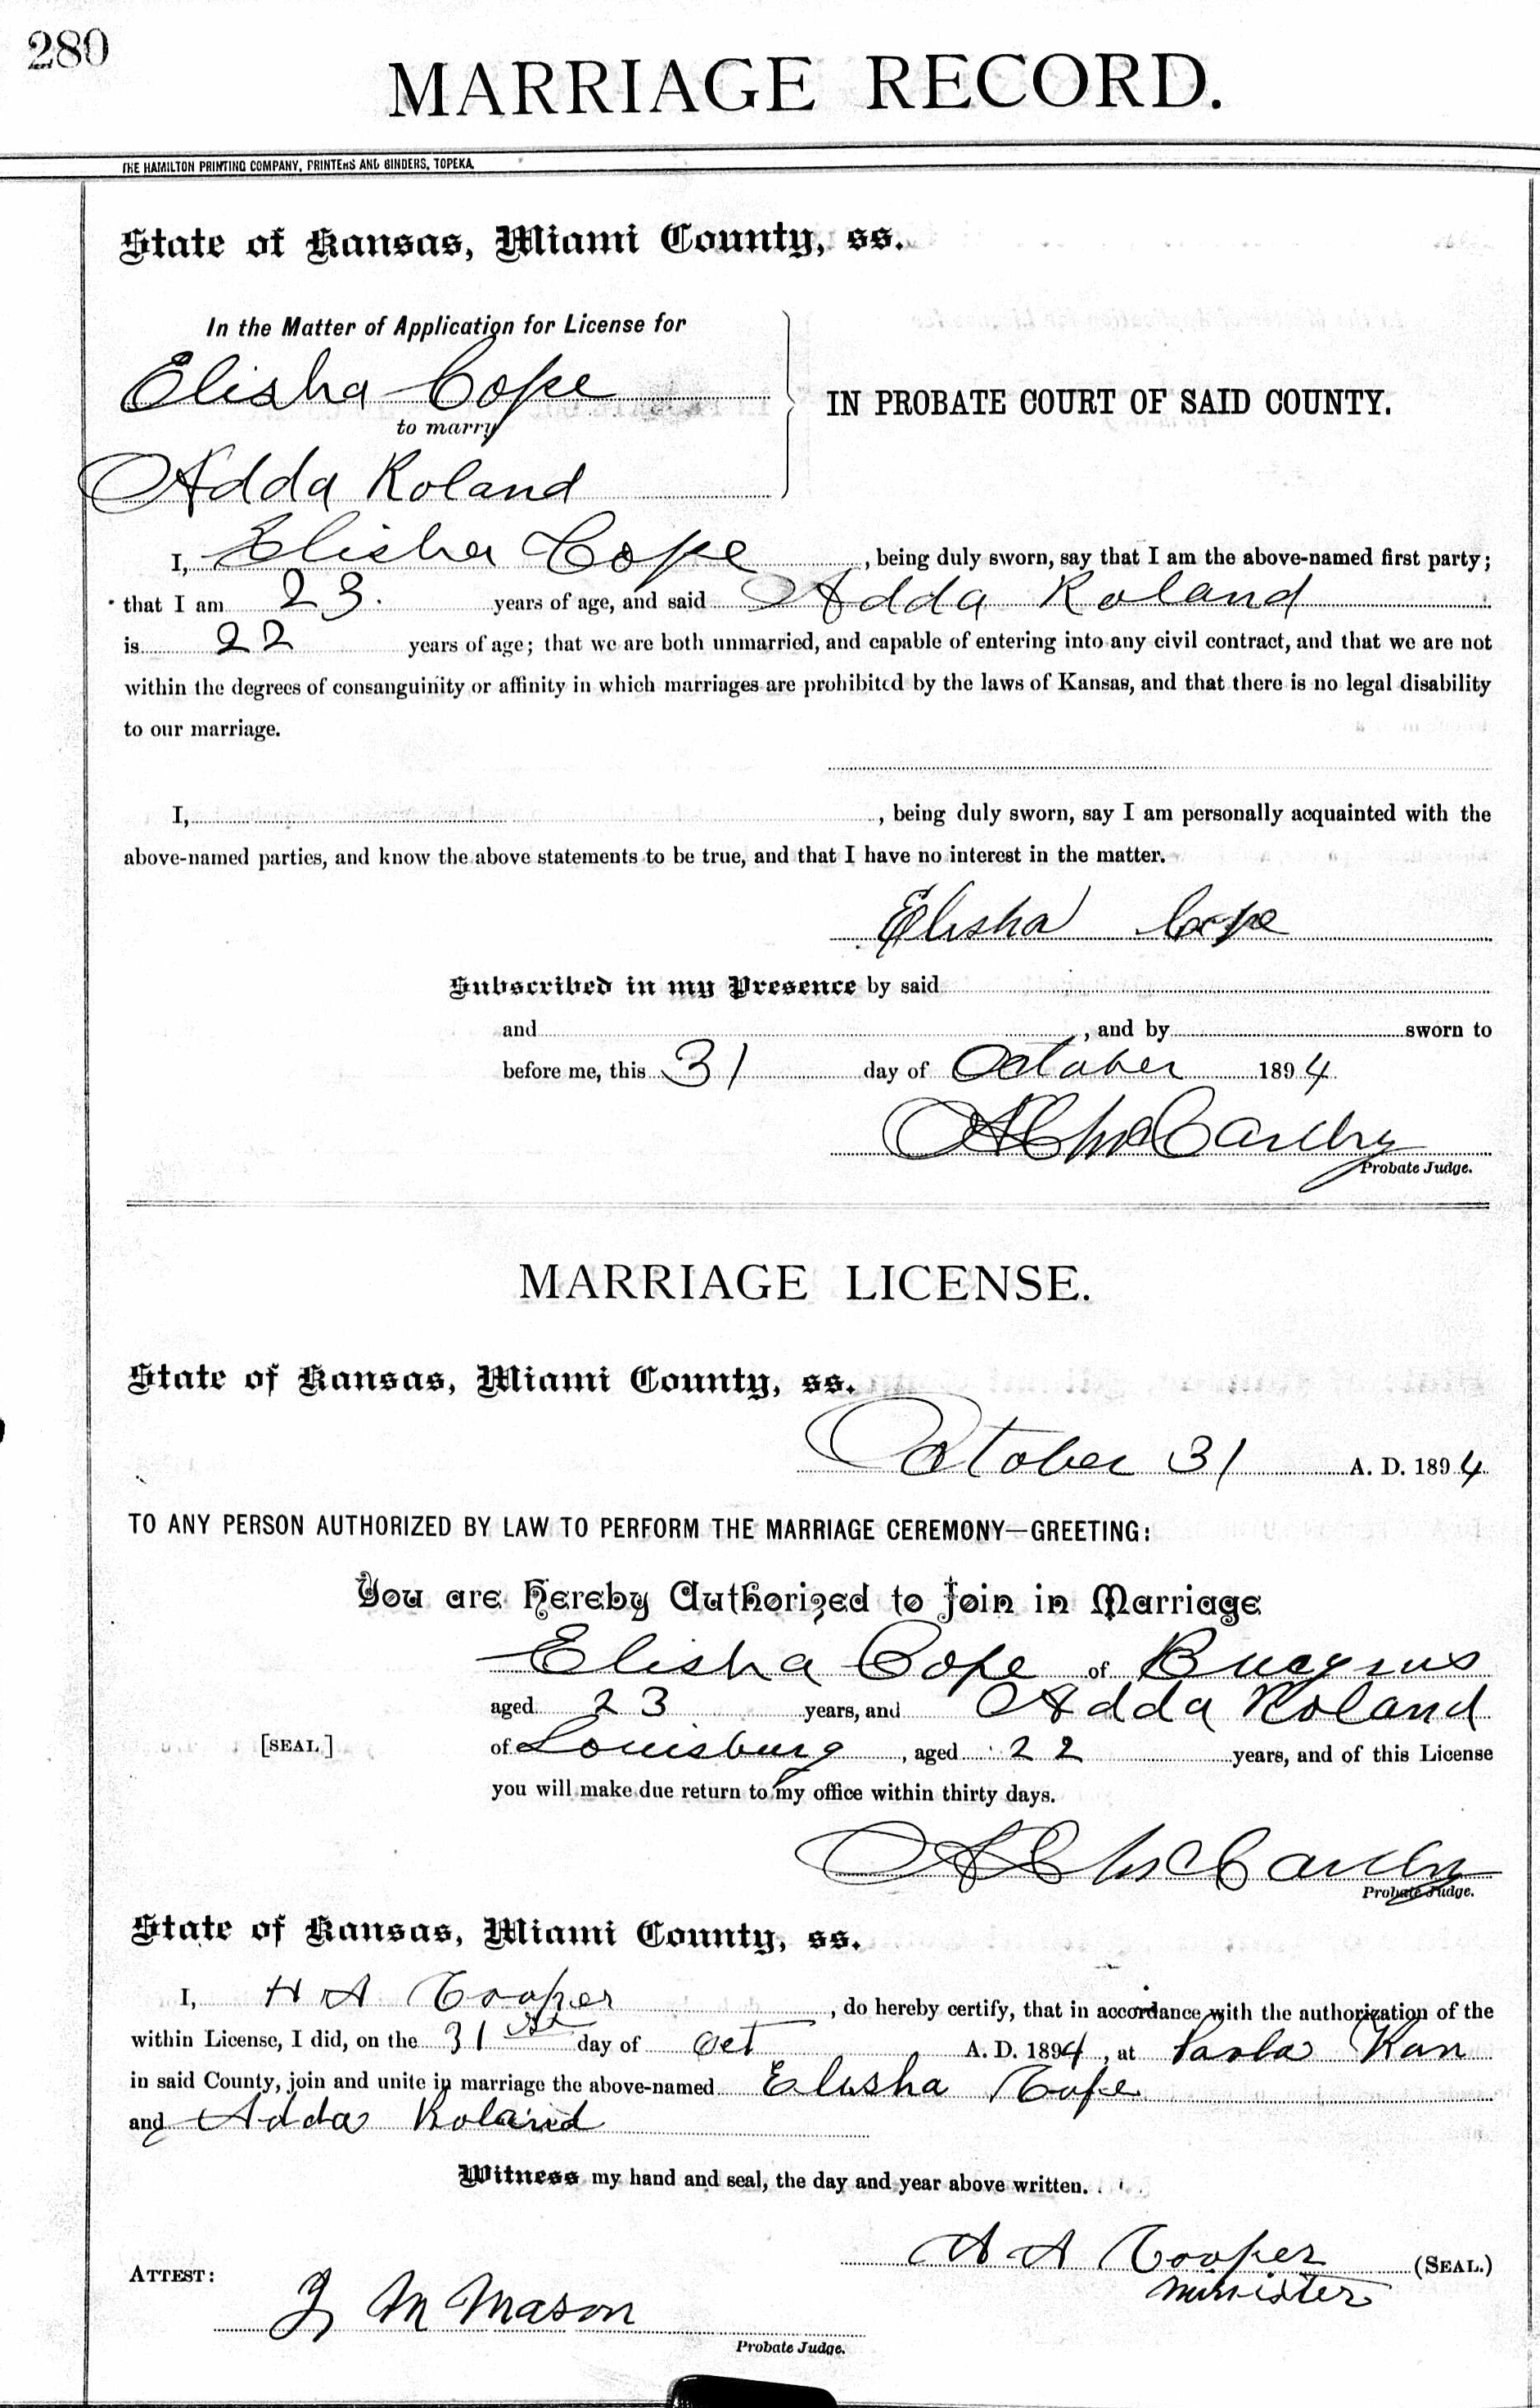 280
MARRIAGE RECORD.
THE HAMILTON PRINTING COMPANY, PRINTERS AND BINDERS, TOPEKA.
State of Kansas, Miami County, ss.
In the Matter of Application for License for
Elisha Cope
to marry
Adda Roland
IN PROBATE COURT OF SAID COUNTY.
I, Elisha Cope, being duly sworn, say that I am the above-named first party;
that I am 23. years of age, and said Adda Roland
is 22 years of age; that we are both unmarried, and capable of entering into any civil contract, and that we are not
within the degrees of consanguinity or affinity in which marriages are prohibited by the laws of Kansas, and that there is no legal disability
to our marriage.
I, , being duly sworn, say I am personally acquainted with the
above-named parties, and know the above statements to be true, and that I have no interest in the matter.
Elisha Cope
Subscribed in my Presence by said
and , and by sworn to
before me, this 31 day of October 1894
Probate Judge.
MARRIAGE LICENSE.
State of Kansas, Miami County, ss.
October 31 A. D. 1894
TO ANY PERSON AUTHORIZED BY LAW TO PERFORM THE MARRIAGE CEREMONY—GREETING:
You are Hereby Authorized to Join in Marriage
Elisha Cope of Bucyrus
aged 23 years, and Adda Roland
[SEAL] of Louisburg, aged 22 years, and of this License
you will make due return to my office within thirty days.
Probate Judge.
State of Kansas, Miami County, ss.
I, H A Cooper, do hereby certify, that in accordance with the authorization of the
within License, I did, on the 31st day of Oct A. D. 1894, at Paola Kan
in said County, join and unite in marriage the above-named Elisha Cope
and Adda Roland
Witness my hand and seal, the day and year above written.
H A Cooper (SEAL.)
Minister
ATTEST:
J M Mason
Probate Judge.